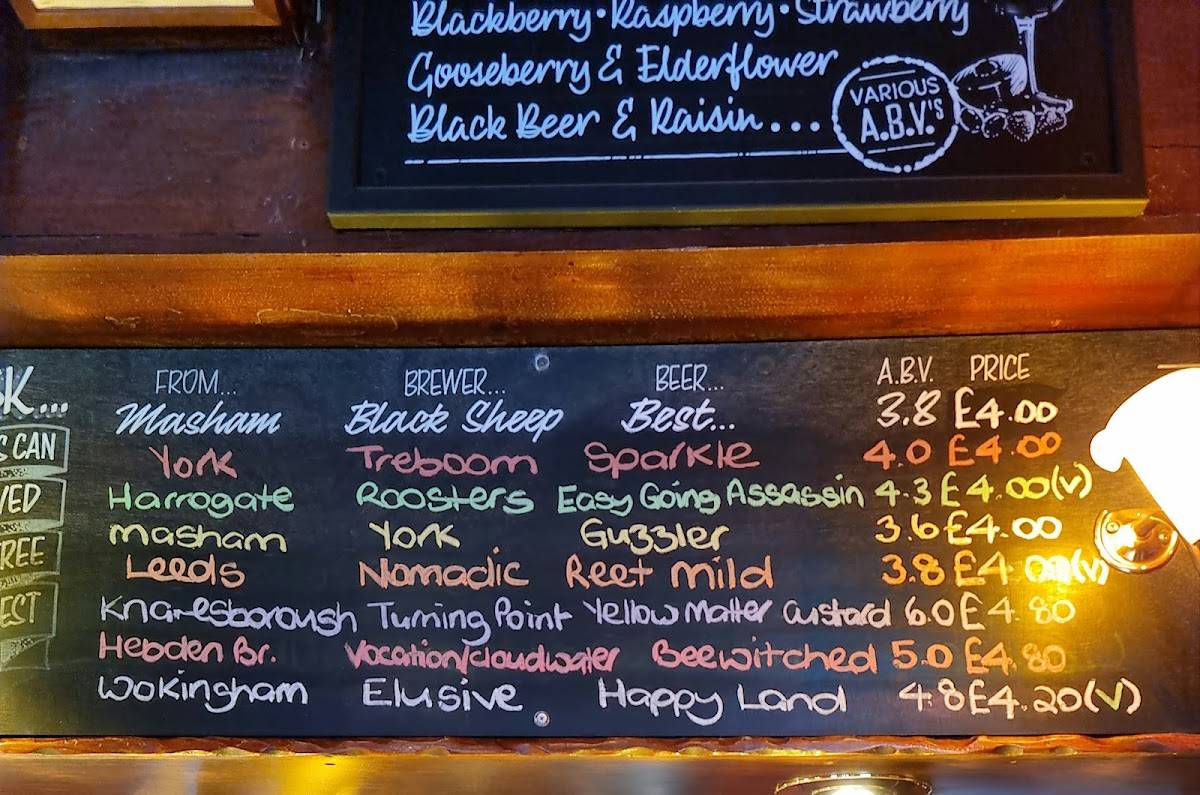 Blackberry • Raspberry • Strawberry
Gooseberry & Elderflower
Black Beer & Raisin...
VARIOUS
A.B.V.'s
FROM... BREWER... BEER... A.B.V. PRICE
Masham Black Sheep Best... 3.8 £4.00
York Treboom Sparkle 4.0 £4.00
Harrogate Roosters Easy Going Assassin 4.3 £4.00(v)
Masham York Guzzler 3.6 £4.00
Leeds Nomadic Reet Mild 3.8 £4.00(v)
Knaresborough Turning Point Yellow Matter Custard 6.0 £4.80
Hebden Br. Vocation/cloudwater Beewitched 5.0 £4.80
Wokingham Elusive Happy Land 4.8 £4.20(v)
CAN